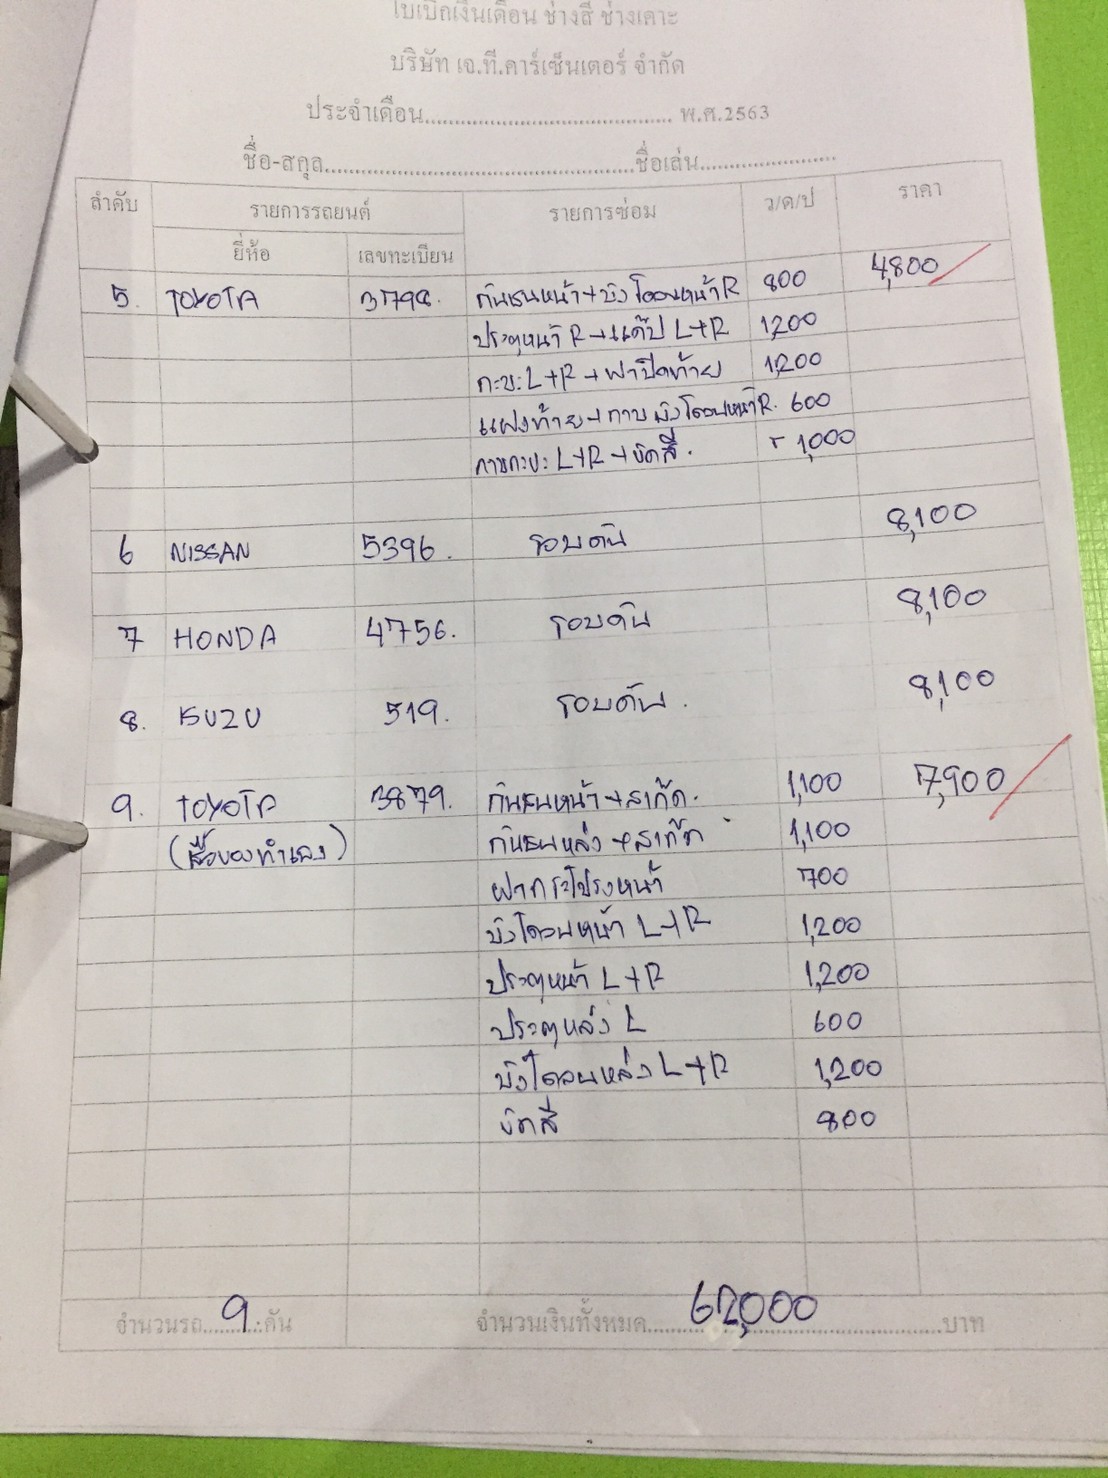 ใบเบิกเงินเดือน ช่างสี ช่างเคาะ
บริษัท เจ.ที.คาร์เซ็นเตอร์ จำกัด
ประจำเดือน.......................................... พ.ศ.2563
ชื่อ-สกุล....................................................ชื่อเล่น.......................
ลำดับ รายการรถยนต์ รายการซ่อม ว/ด/ป ราคา
ยี่ห้อ เลขทะเบียน
5. TOYOTA 3798. กันชนหน้า+บังโคลนหน้า R 800 4,800
ประตูหน้า R+แค๊ป L+R 1,200
กะบะ L+R+ฝาปิดท้าย 1,200
แผงท้าย+กาบบังโคลนหน้า R. 600
กาบกะบะ L+R+ขัดสี. 1,000
6 NISSAN 5396. รอบคัน 8,100
7 HONDA 4756. รอบคัน 8,100
8. ISUZU 519. รอบคัน. 8,100
9. TOYOTA 3879. กันชนหน้า+สเก๊ต. 1,100 7,900
(ซื้อของทำเอง) กันชนหลัง+สเก๊ต 1,100
ฝากระโปรงหน้า 700
บังโคลนหน้า L+R 1,200
ประตูหน้า L+R 1,200
ประตูหลัง L 600
บังโคลนหลัง L+R 1,200
ขัดสี 800
จำนวนรถ....9....คัน จำนวนเงินทั้งหมด......62,000......บาท